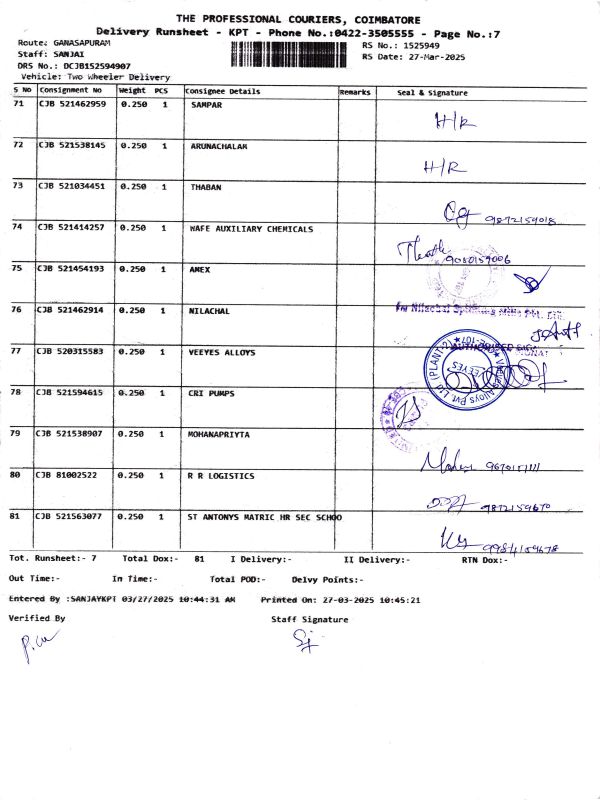 THE PROFESSIONAL COURIERS, COIMBATORE
Delivery Runsheet - KPT - Phone No.:0422-3505555 - Page No.:7
Route: GANASAPURAM
RS No.: 1525949
Staff: SANJAI
RS Date: 27-Mar-2025
DRS No.: DCJB152594907
Vehicle: Two Wheeler Delivery
S No Consignment No Weight PCS Consignee Details Remarks Seal & Signature
71 CJB 521462959 0.250 1 SAMPAR H/R
72 CJB 521538145 0.250 1 ARUNACHALAM H/R
73 CJB 521034451 0.250 1 THABAN
74 CJB 521414257 0.250 1 WAFE AUXILIARY CHEMICALS
75 CJB 521454193 0.250 1 AMEX
76 CJB 521462914 0.250 1 NILACHAL
77 CJB 520315583 0.250 1 VEEYES ALLOYS
78 CJB 521594615 0.250 1 CRI PUMPS
79 CJB 521538907 0.250 1 MOHANAPRIYTA
80 CJB 81002522 0.250 1 R R LOGISTICS
81 CJB 521563077 0.250 1 ST ANTONYS MATRIC HR SEC SCHOO
Tot. Runsheet:- 7 Total Dox:- 81 I Delivery:- II Delivery:- RTN Dox:-
Out Time:- In Time:- Total POD:- Delvy Points:-
Entered By :SANJAYKPT 03/27/2025 10:44:31 AM Printed On: 27-03-2025 10:45:21
Verified By Staff Signature